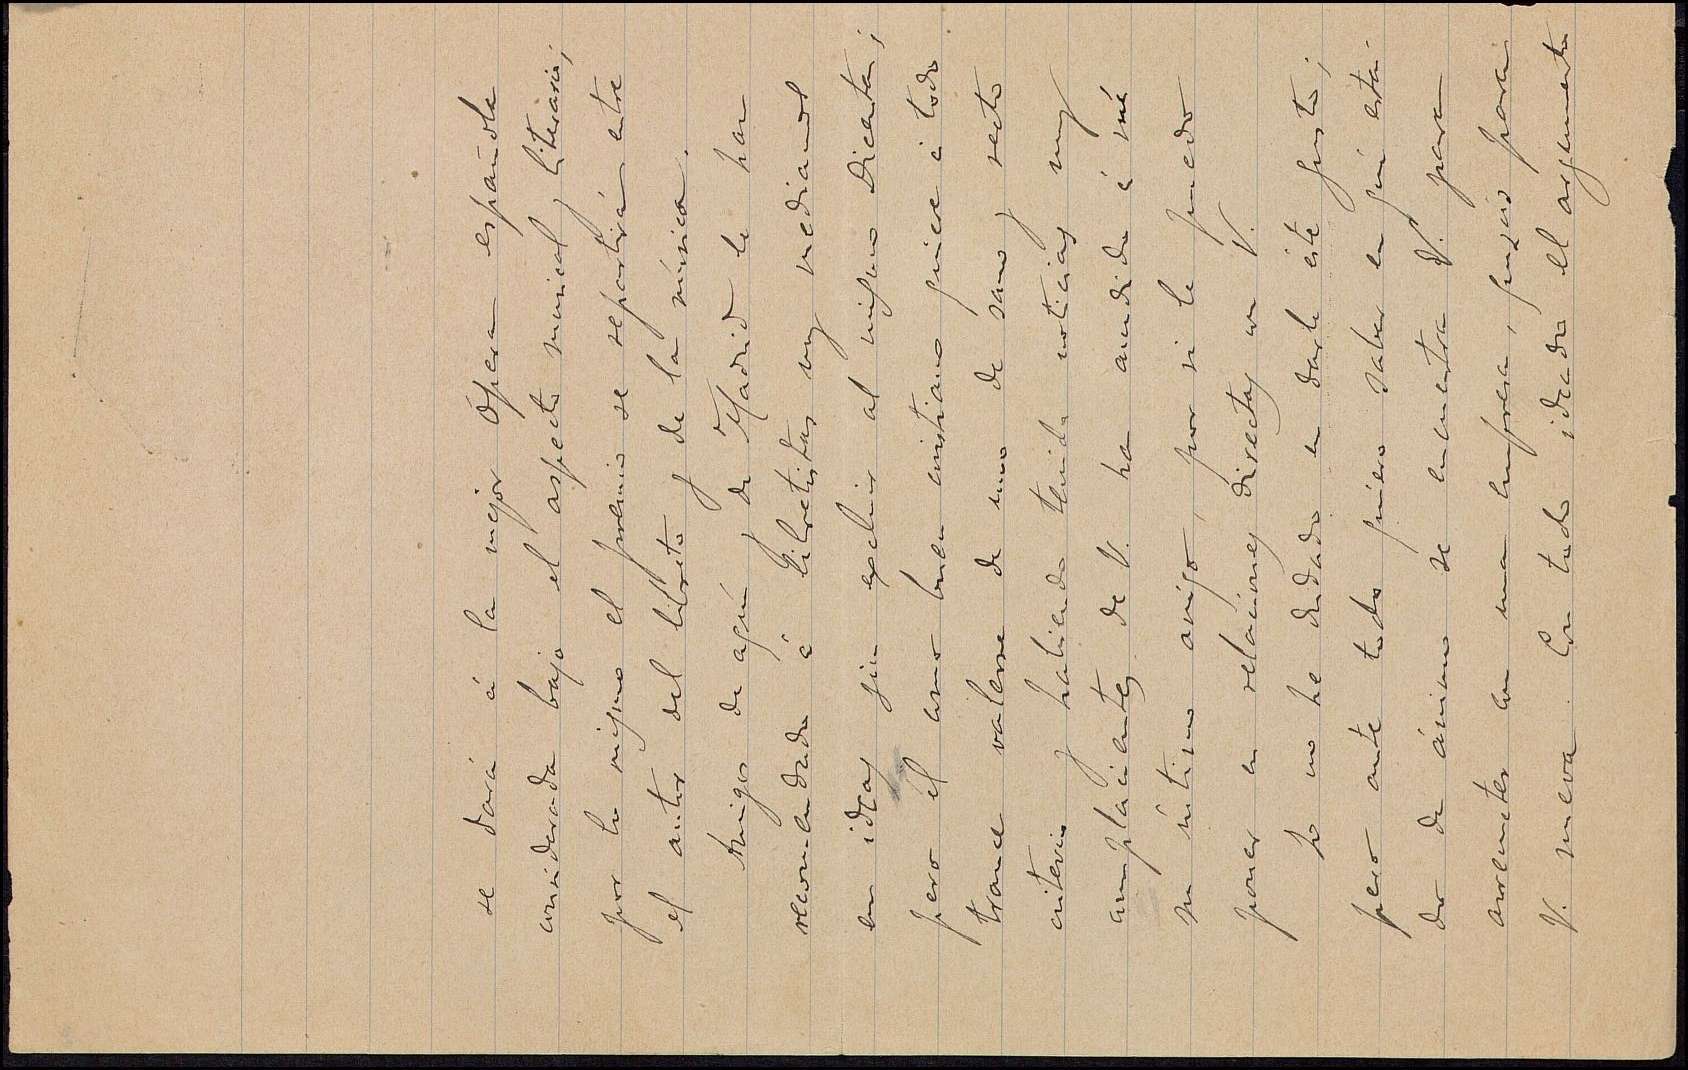 se dará á la mejor Ópera española
considerada bajo el aspecto musical y literario;
por lo mismo el premio se repartirá entre
el autor del libreto y de la música.
Amigos de aquí y de Madrid le han
recomendado á libretistas muy medianos
en ideas sin excluir al mismo Dicenta;
pero él como buen cristiano quiere á todo
trance valerse de uno de sano y recto
criterio y habiendo tenido noticias muy
complacientes de V. ha acudido á mí
su íntimo amigo, por si le puedo
poner en relaciones directas con V.
Yo no he dudado en darle éste gusto;
pero ante todo quiero saber en qué esta-
do de ánimo se encuentra V. para
arremeter con una empresa, quizás para
V. nueva. Con todo ideado el argumento